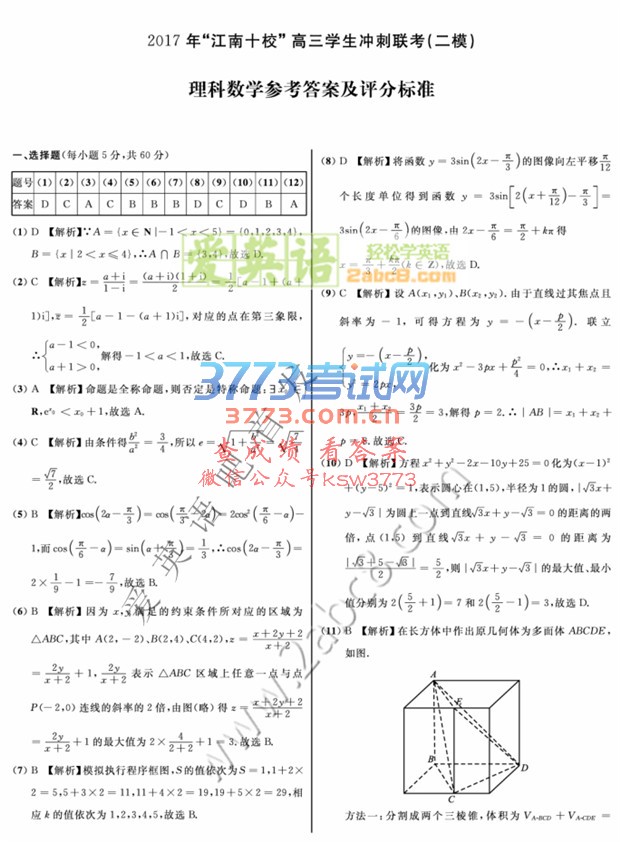 2017年“江南十校”高三学生冲刺联考(二模)
理科数学参考答案及评分标准
一、选择题(每小题5分,共60分)
题号 (1) (2) (3) (4) (5) (6) (7) (8) (9) (10) (11) (12)
答案 D C A C B B B D C D B A
(1) D 【解析】∵A={x∈N|-1<x<5}={0,1,2,3,4},
B={x|2<x⩽4},∴A∩B={3,4}.故选D.
(2) C 【解析】z=(a+i)/(1-i)=(a+i)(1+i)/2=1/2[a-1+(a+
1)i],z̄=1/2[a-1-(a+1)i],对应的点在第三象限,
∴{a-1<0, a+1>0, 解得-1<a<1,故选C.
(3) A 【解析】命题是全称命题,则否定是特称命题:∃x₀∈
R,e^x₀<x₀+1,故选A.
(4) C 【解析】由条件得b²/a²=3/4,所以e=
=√7/2,故选C.
(5) B 【解析】cos(2α-π/3)=cos(π/3-2α)=2cos²(π/6-α)-
1,而cos(π/6-α)=sin(α+π/3)=1/3,∴cos(2α-π/3)=
2×1/9-1=-7/9,故选B.
(6) B 【解析】因为x,y满足的约束条件所对应的区域为
△ABC,其中A(2,-2)、B(2,4)、C(4,2),z=(x+2y+2)/(x+2)
=2y/(x+2)+1,2y/(x+2)表示△ABC区域上任意一点与点
P(-2,0)连线的斜率的2倍,由图(略)得z=(x+2y+2)/(x+2)
=2y/(x+2)+1的最大值为2×4/(2+2)+1=3.故选B.
(7) B 【解析】模拟执行程序框图,S的值依次为S=1,1+2×
2=5,5+3×2=11,11+4×2=19,19+5×2=29,相
应k的值依次为1,2,3,4,5,故选B.
(8) D 【解析】将函数y=3sin(2x-π/3)的图像向左平移π/12
个长度单位得到函数y=3sin[2(x+π/12)-π/3]=
3sin(2x-π/6)的图像,由2x-π/6=π/2+kπ得
x=π/3+kπ/2(k∈Z),故选D.
(9) C 【解析】设A(x₁,y₁)、B(x₂,y₂).由于直线过其焦点且
斜率为-1,可得方程为y=-(x-p/2).联立
{y=-(x-p/2), y²=2px, 化为x²-3px+p²/4=0,∴x₁+x₂=
3p,(x₁+x₂)/2=3p/2=3,解得p=2.∴|AB|=x₁+x₂+
p=8.故选C.
(10) D 【解析】方程x²+y²-2x-10y+25=0化为(x-1)²
+(y-5)²=1,表示圆心在(1,5),半径为1的圆,|√3x+
y-√3|为圆上一点到直线√3x+y-√3=0的距离的两
倍,点(1,5)到直线√3x+y-√3=0的距离为
|√3+5-√3|/2=5/2,则|√3x+y-√3|的最大值、最小
值分别为2(5/2+1)=7和2(5/2-1)=3,故选D.
(11) B 【解析】在长方体中作出原几何体为多面体ABCDE,
如图.
A
E
B
D
C
方法一:分割成两个三棱锥,体积为V_A-BCD+V_A-CDE=
爱英语
轻松学英语
2abc8.com
3773考试网
3773.com.cn
查成绩 看答案
微信公众号ksw3773
爱英语吧首发
www.2abc8.com